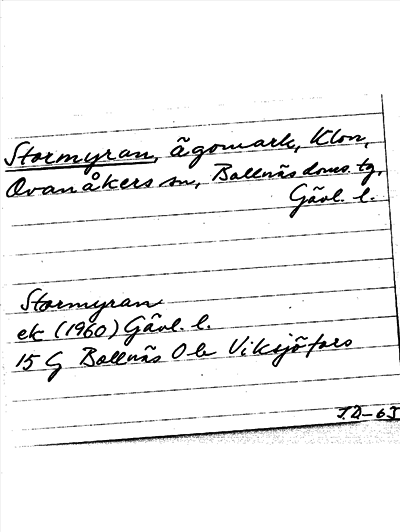 Stormyran, ägomark, Klon,
Ovanåkers sn, Bollnäs doms. tg,
Gävl. l.
Stormyran
ek (1960) Gävl. l.
15 G Bollnäs Viksjöfors